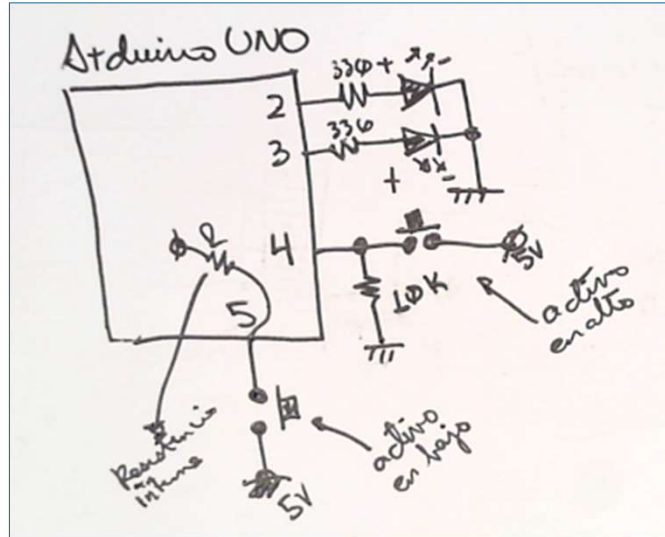 Arduino UNO
2
330 +
-
3
330
+
-
4
5V
10K
activo
en alto
R
5
Resistencia
interna
activo
en bajo
5V